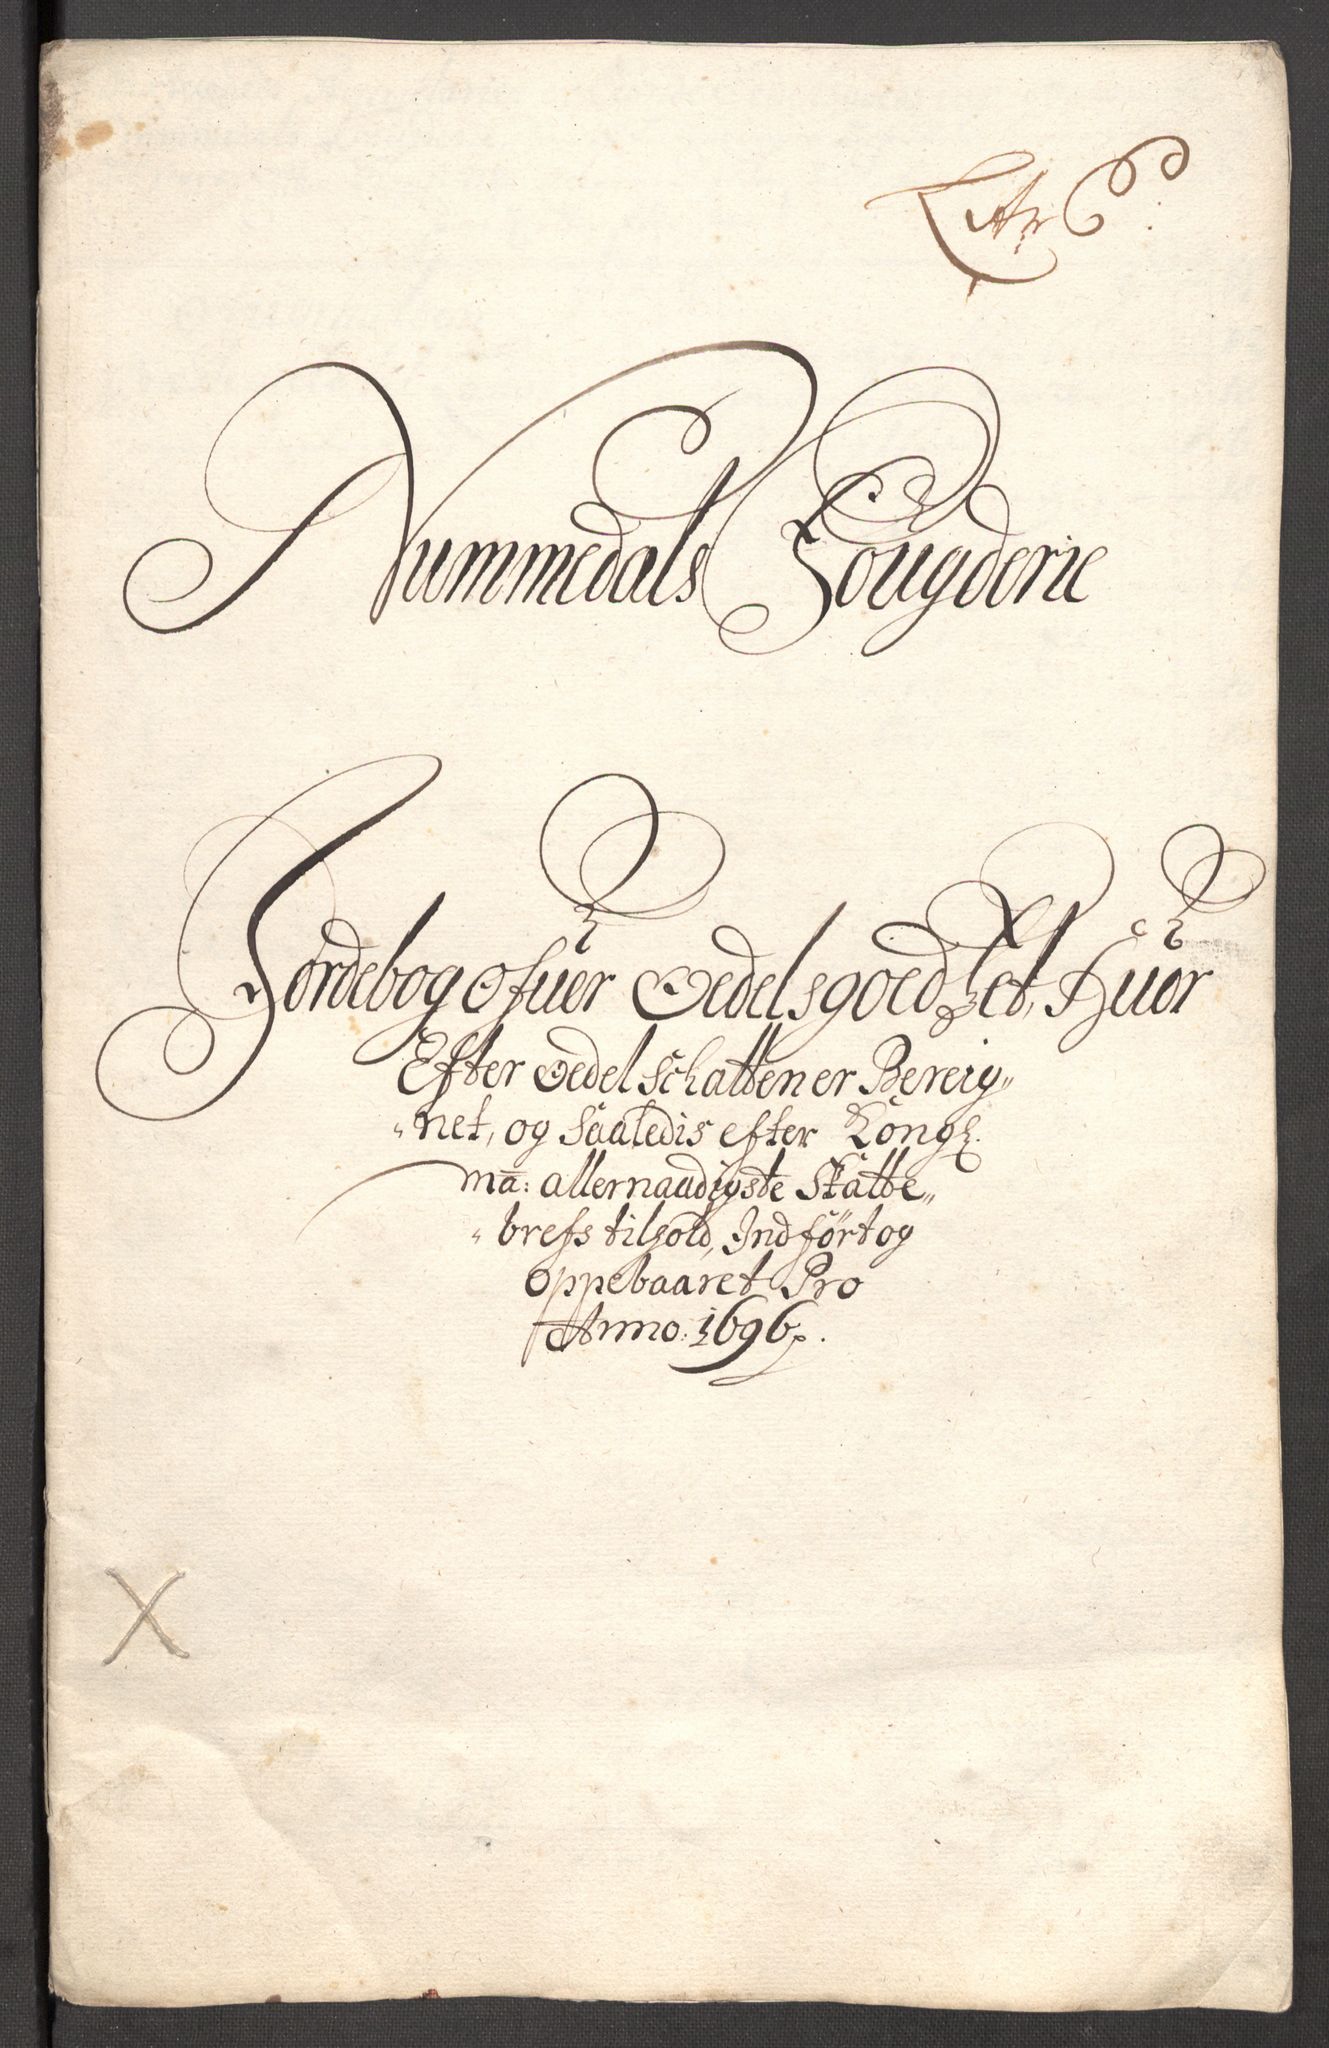 Litr C:
Nummedals Fougderie
Jordebog ofuer Oedelsgoedtzet, Huor
Efter Oedelschatten er Bereig„
„net, og Saaledis efter Kongl.
ma: allernaadigste Skatte„
„brefs tilhold, Indført og
Oppebaaret Pro
Anno: 1696.